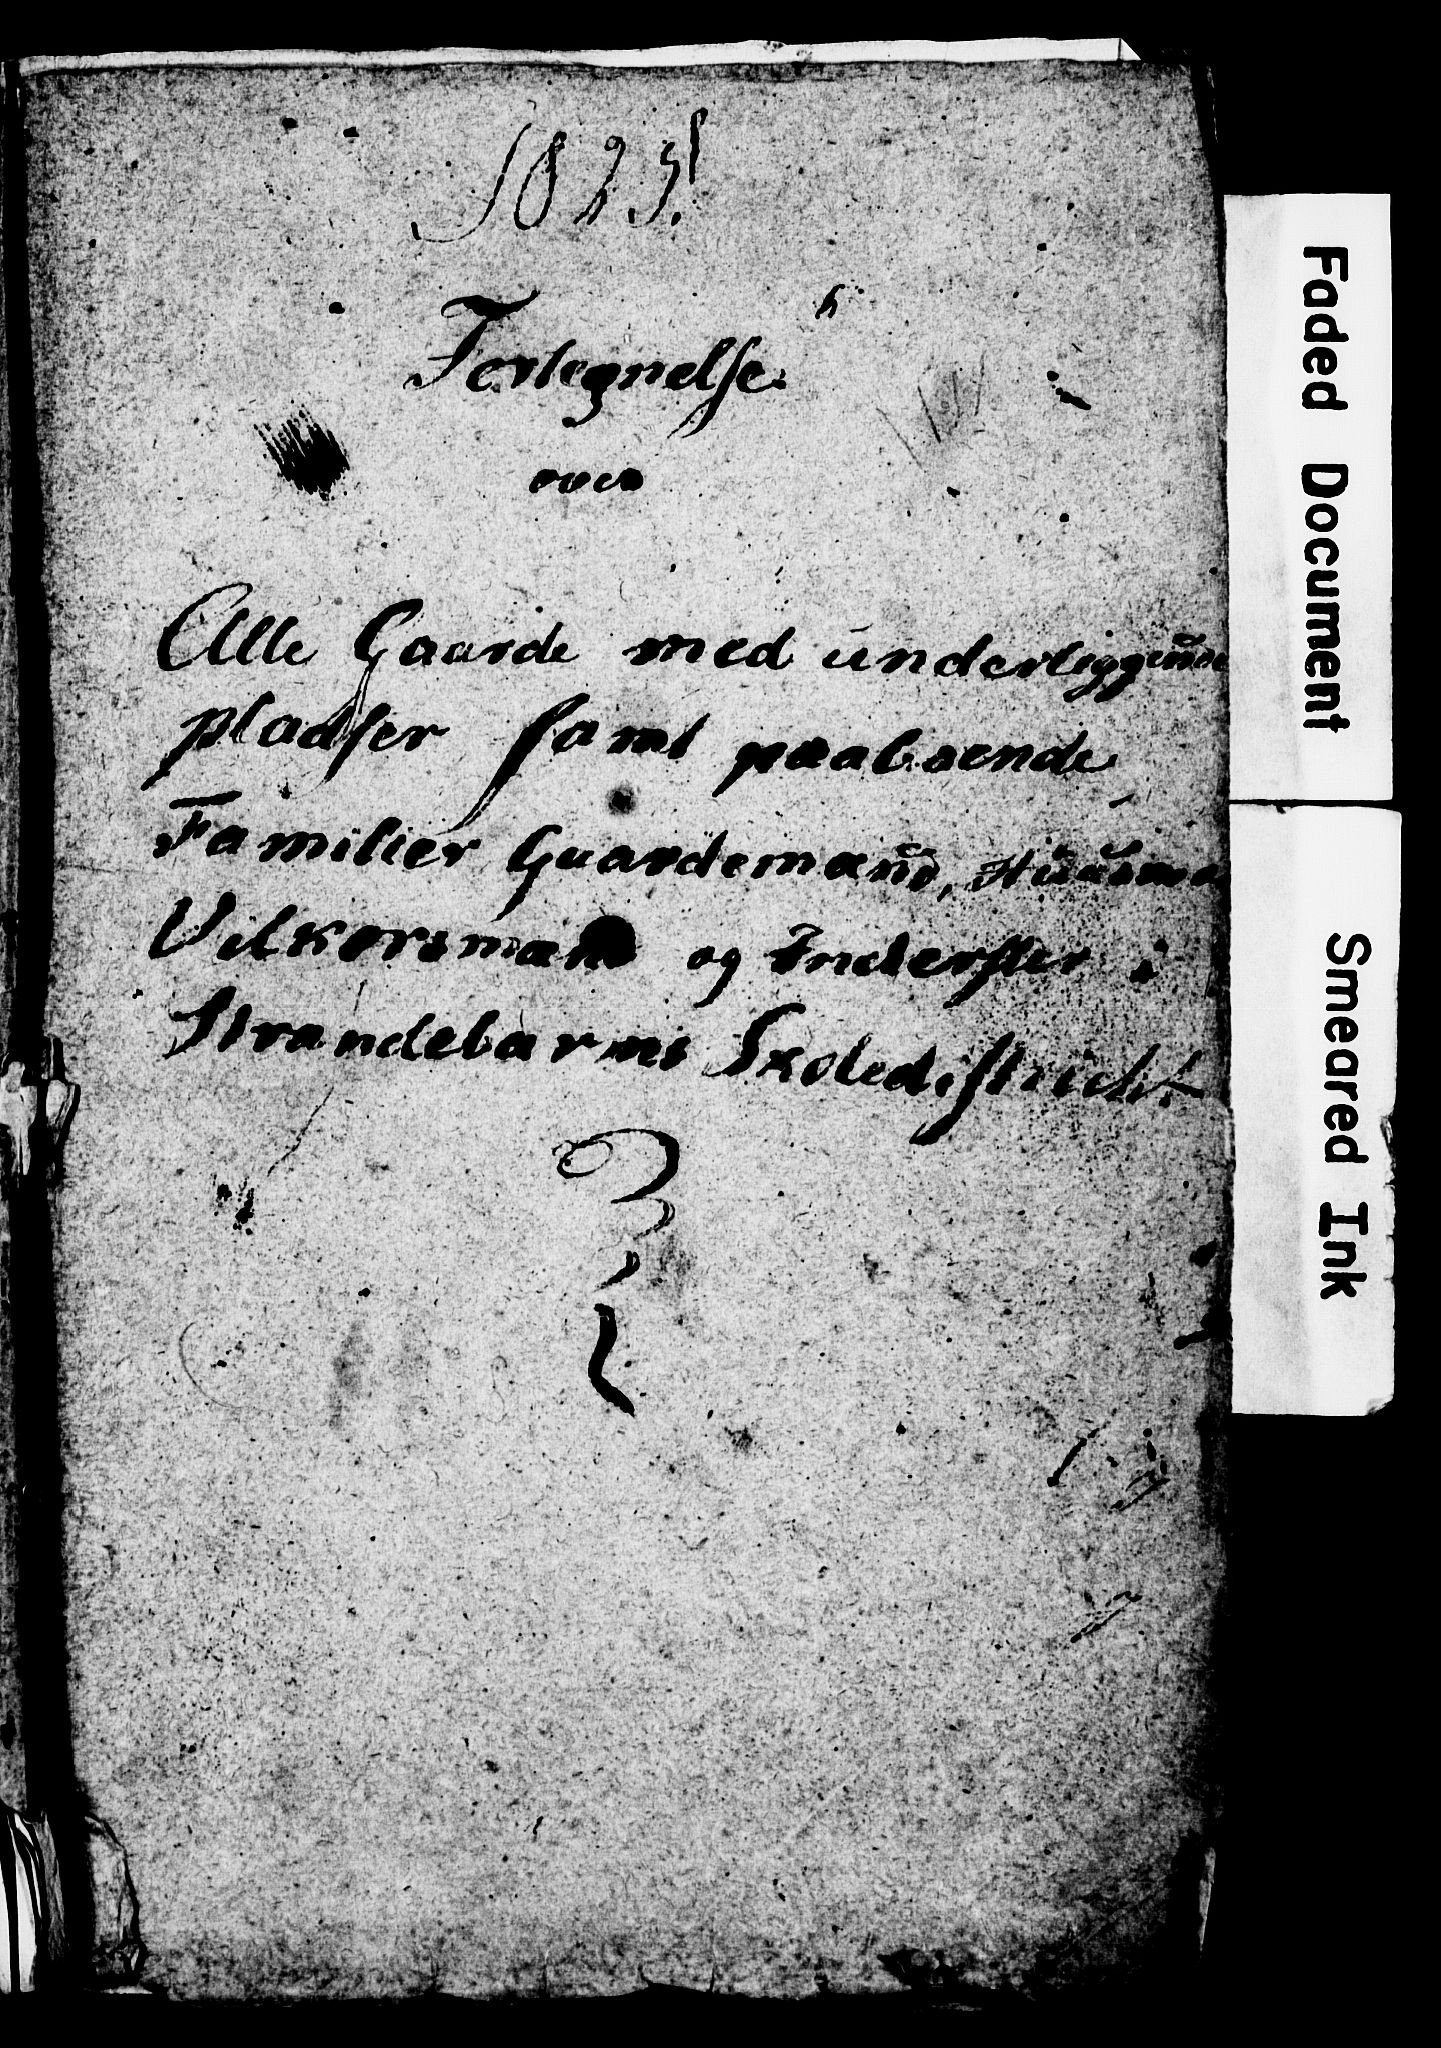 1825
Fortegnelse
over
Alle Gaarde med underliggende
pladser samt paaboende
Familier Gaardemænd, Huusmæ
Vilkorsmænd og Inderster i
Strandebarms Skoledistricht
Faded Document
Smeared Ink